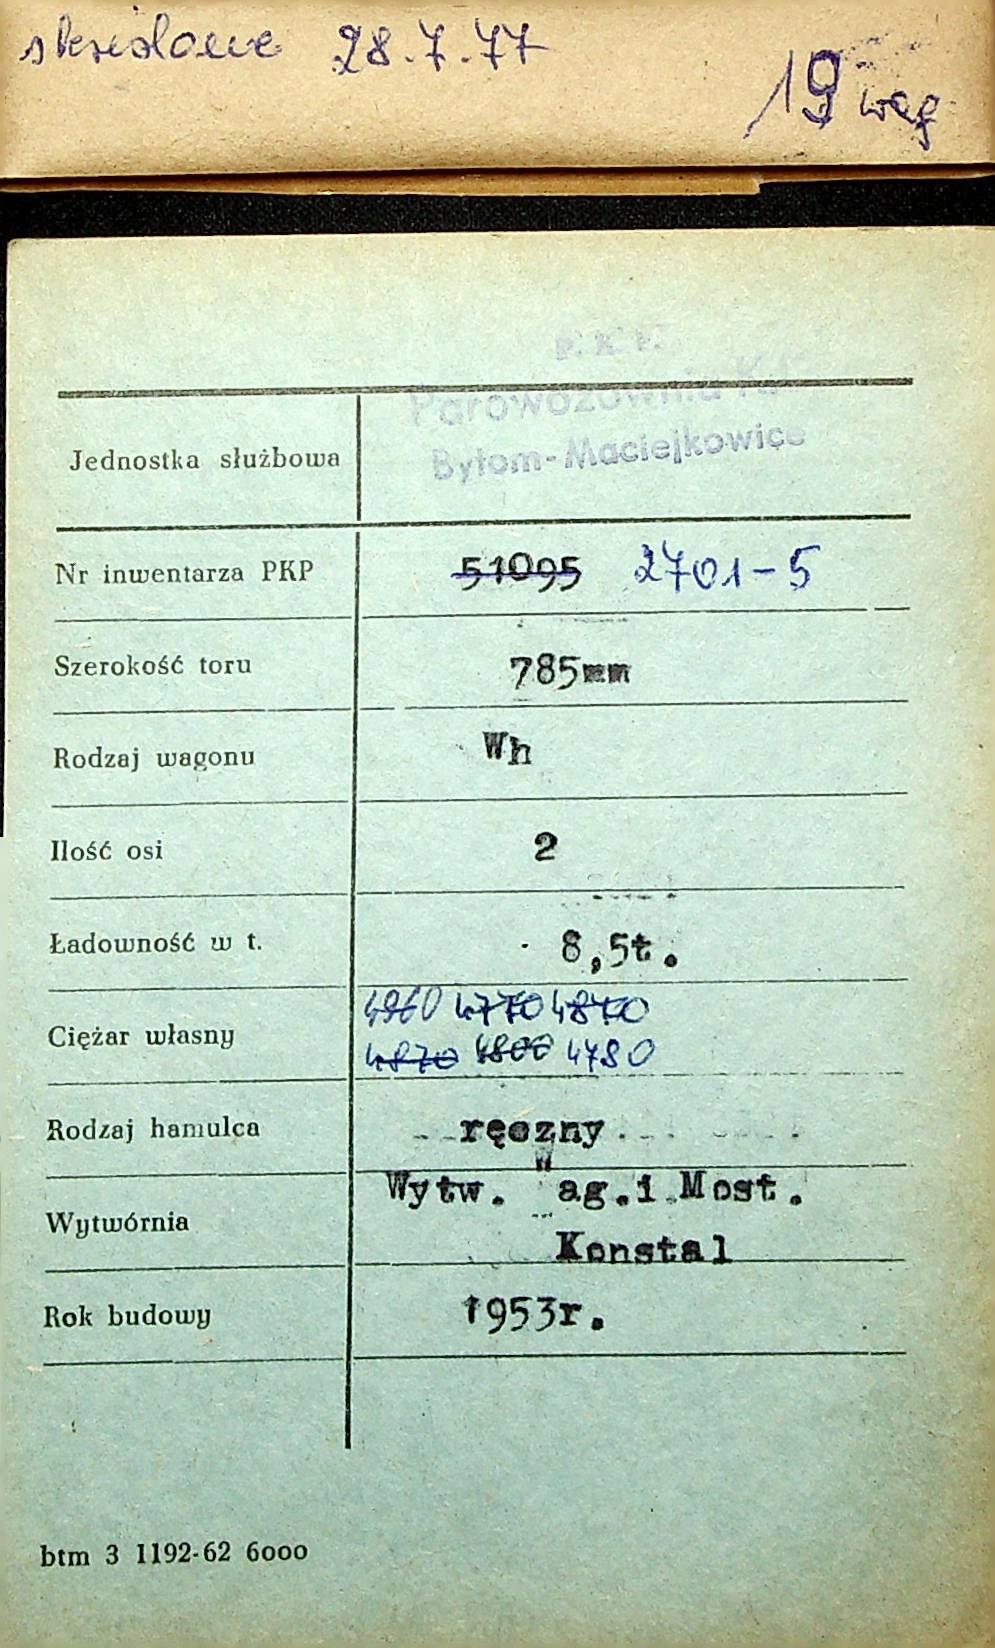 skreślone 28.7.77
19 wag
P. K. P.
Parowozownia Kl
Bytom-Maciejkowice
Jednostka służbowa
Nr inwentarza PKP 51095 2701-5
Szerokość toru 785mm
Rodzaj wagonu Wh
Ilość osi 2
Ładowność w t. 8,5t.
4960 4770 4870
Ciężar własny
4870 4800 4780
Rodzaj hamulca ręczny
Wytw. Wag.i Most.
Wytwórnia
Konstal
Rok budowy 1953r.
btm 3 1192-62 6000